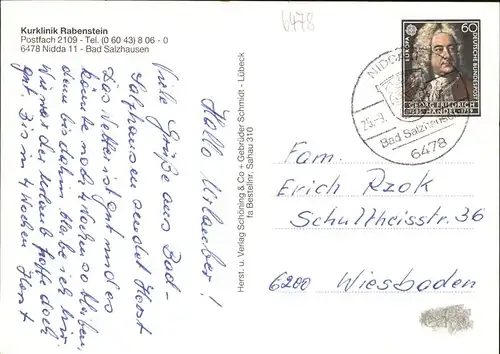 Kurklinik Rabenstein
Postfach 2109 - Tel. (0 60 43) 8 06 - 0
6478 Nidda 11 - Bad Salzhausen
6478
Hallo Urlauber!
Viele Grüße aus Bad-
Salzhausen sendet Horst
Das Wetter ist gut und es
könnte noch 4 Wochen so bleiben,
denn bis dahin bleibe ich hier
Wie war der Urlaub hoffe doch
gut. Bis in 4 Wochen Horst
Herst. u. Verlag Schöning & Co + Gebrüder Schmidt - Lübeck
fa Bestellnr. Sahau 310
EUROPA
60
DEUTSCHE BUNDESPOST
GEORG FRIEDRICH
HÄNDEL
1685 1759
NIDDA
25.-9.
Bad Salzhausen
6478
Fam.
Erich Rzok
Schultheisstr. 36
6200 Wiesbaden